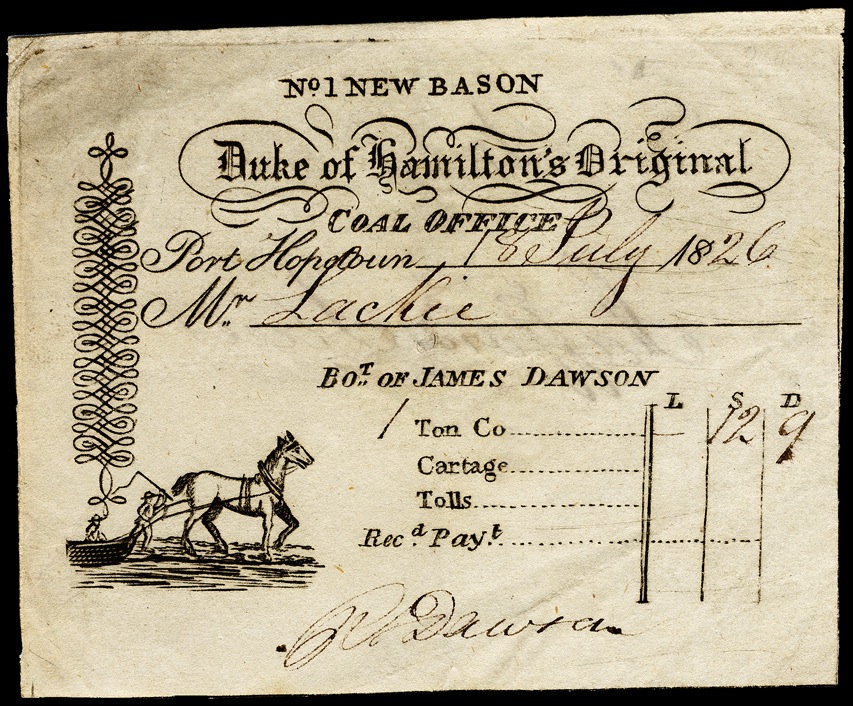 No. 1 NEW BASON
Duke of Hamilton's Original
COAL OFFICE
Port Hopetoun 18 July 1826
Mr. Lackie
BOT. OF JAMES DAWSON
L S D
1 Ton Co 12 9
Cartage
Tolls
Recd Payt
Dawson